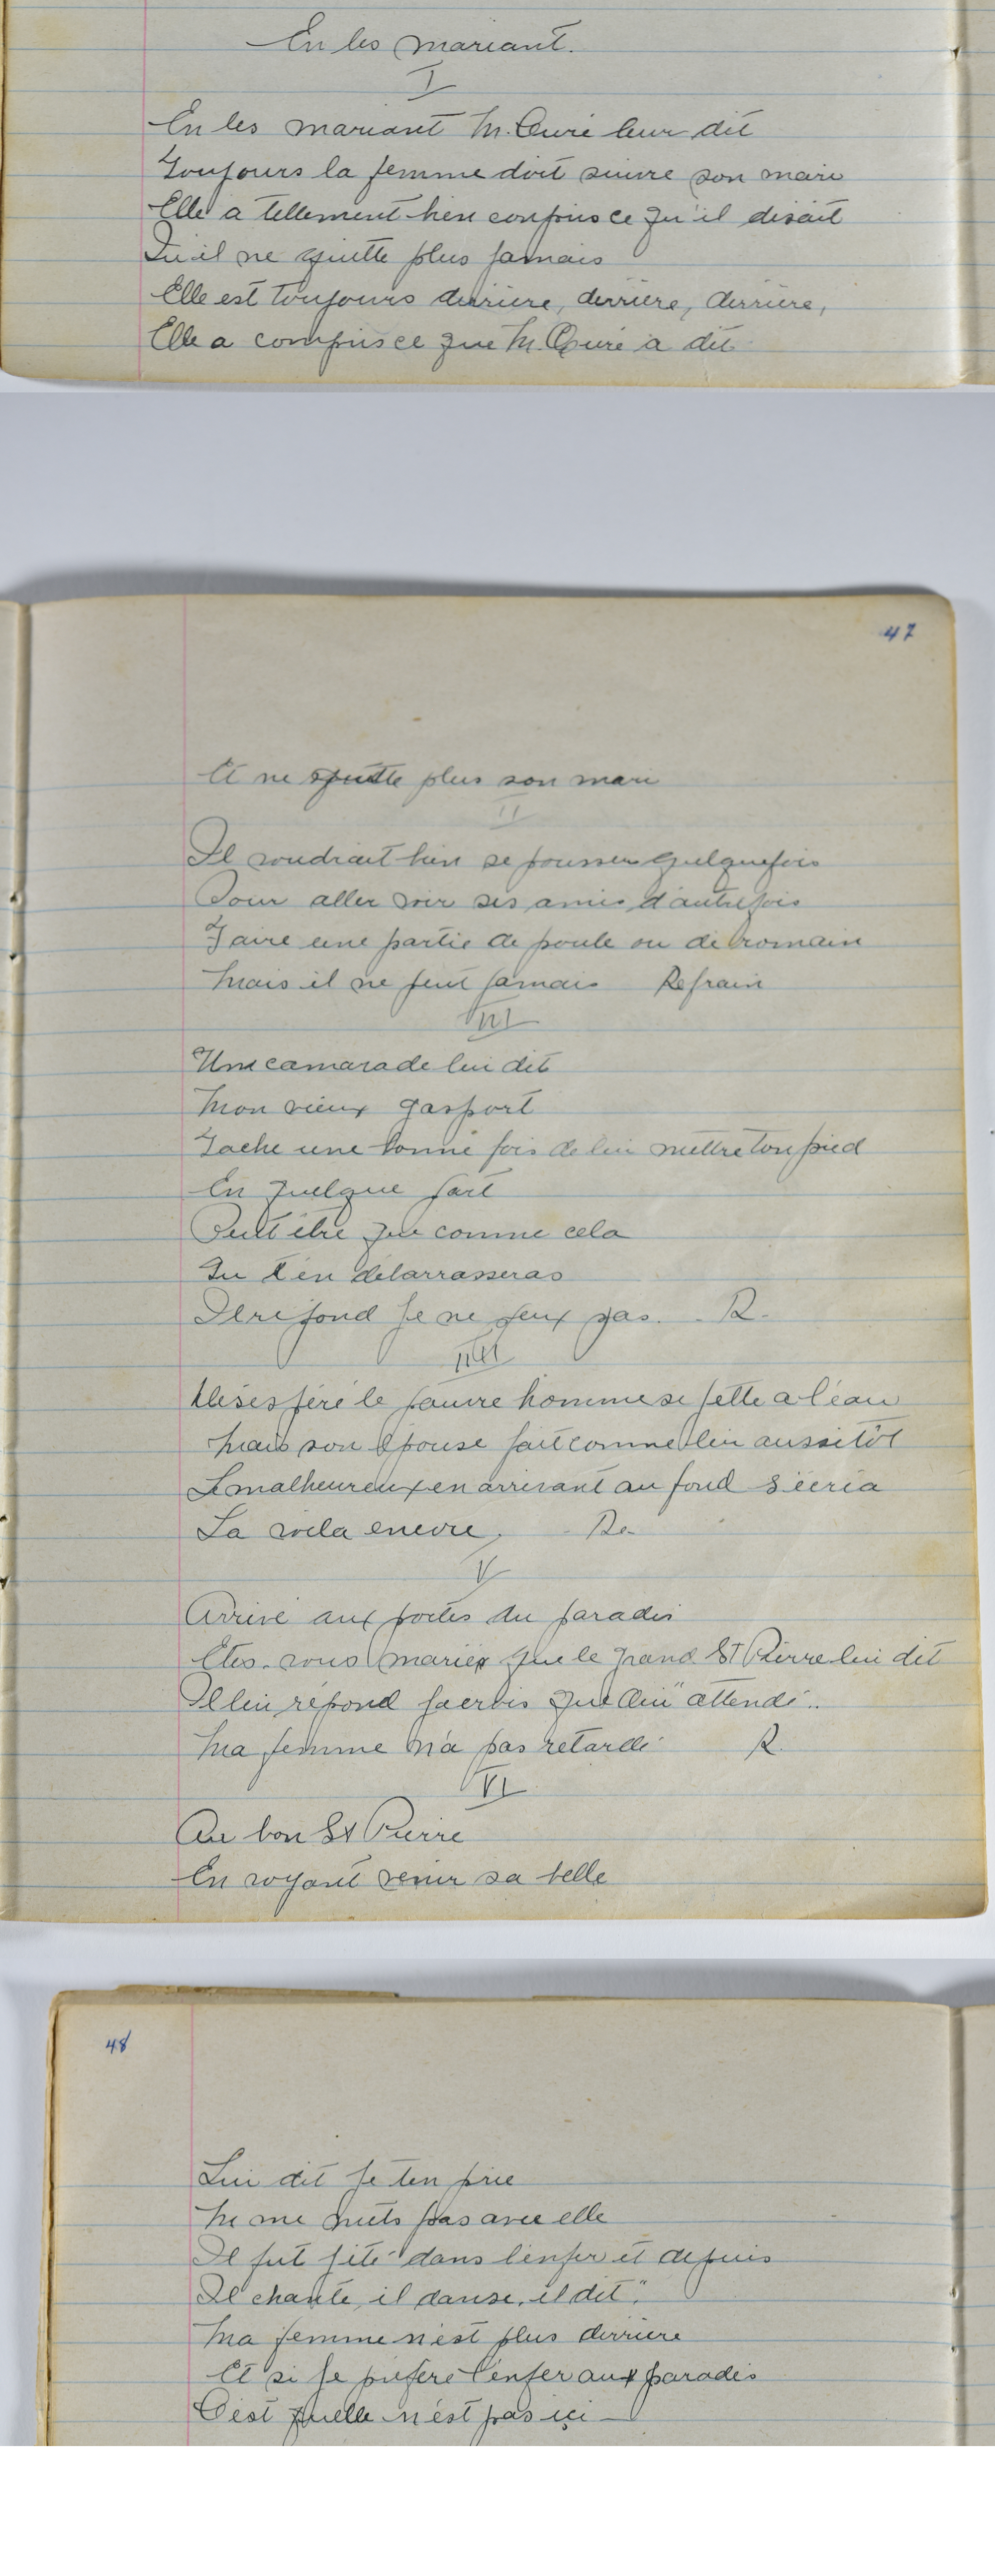 En les mariant.
I
En les mariant M. Curé leur dit
Toujours la femme doit suivre son mari
Elle a tellement bien compris ce qu'il disait
Qu'il ne quitte plus jamais
Elle est toujours derrière, derrière, derrière,
Elle a compris ce que M. Curé a dit
47
Et ne quitte plus son mari
II
Il voudrait bien se pousser quelquefois
Pour aller voir ses amis d'autrefois
Faire une partie de poule ou de romain
Mais il ne peut jamais Refrain
III
Une camarade lui dit
Mon vieux gasport
Tache une bonne fois de lui mettre ton pied
En quelque part
Peut être que comme cela
Tu t'en débarrasseras
Il répond je ne peux pas. R.
IIII
Désespéré le pauvre homme se jette a l'eau
Mais son épouse fait comme lui aussitôt
Le malheureux en arrivant au fond s'écria
La voila encore. Re
V
Arrivé aux portes du paradis
Etes-vous mariés que le grand St Pierre lui dit
Il lui répond attendé..
Ma femme n'a pas retardé R.
VI
Au bon St Pierre
En voyant venir sa belle
48
Lui dit je t'en prie
Ne me mets pas avec elle
Il fut jité dans l'enfer et depuis
Il chante, il danse, il dit"
Ma femme n'est plus derrière
Et si je préfère l'enfer aux paradis
C'est quelle n'est pas içi